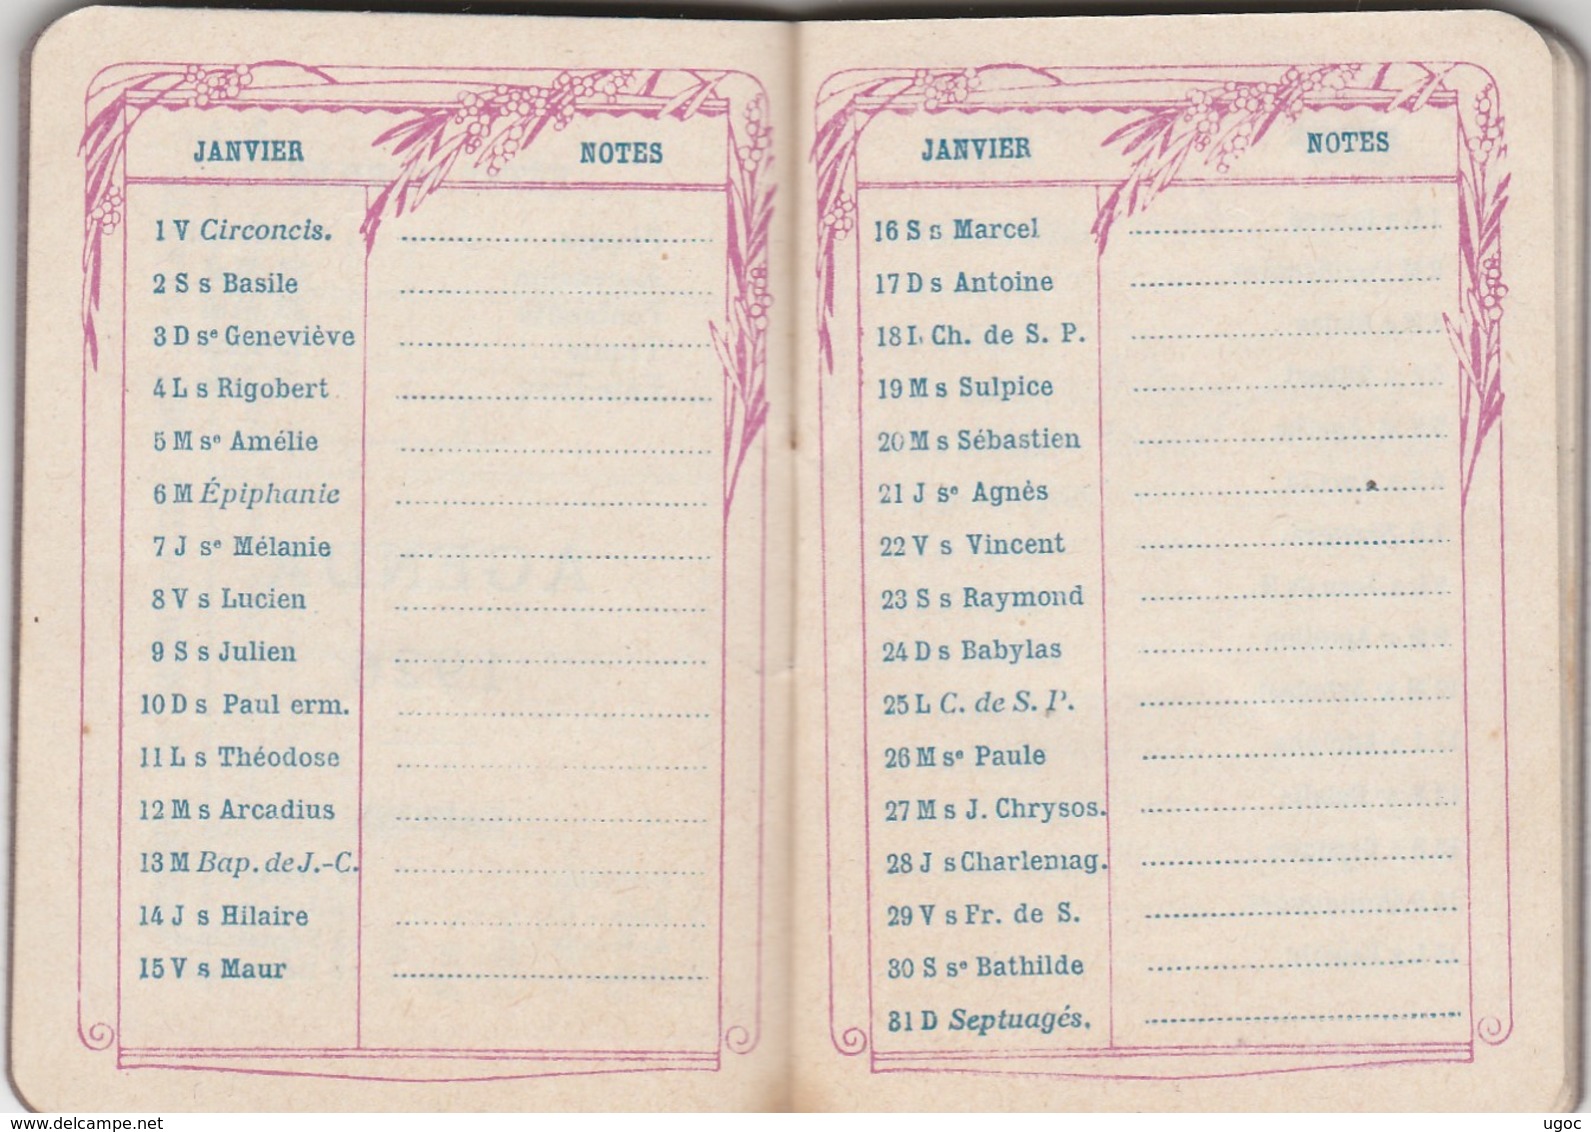 JANVIER NOTES
1 V Circoncis.
2 S s Basile
3 D sᵉ Geneviève
4 L s Rigobert
5 M sᵉ Amélie
6 M Épiphanie
7 J sᵉ Mélanie
8 V s Lucien
9 S s Julien
10 D s Paul erm.
11 L s Théodose
12 M s Arcadius
13 M Bap. de J.-C.
14 J s Hilaire
15 V s Maur
JANVIER NOTES
16 S s Marcel
17 D s Antoine
18 L Ch. de S. P.
19 M s Sulpice
20 M s Sébastien
21 J sᵉ Agnès
22 V s Vincent
23 S s Raymond
24 D s Babylas
25 L C. de S. P.
26 M sᵉ Paule
27 M s J. Chrysos.
28 J s Charlemag.
29 V s Fr. de S.
30 S sᵉ Bathilde
31 D Septuagés.
www.delcampe.net
ugoc